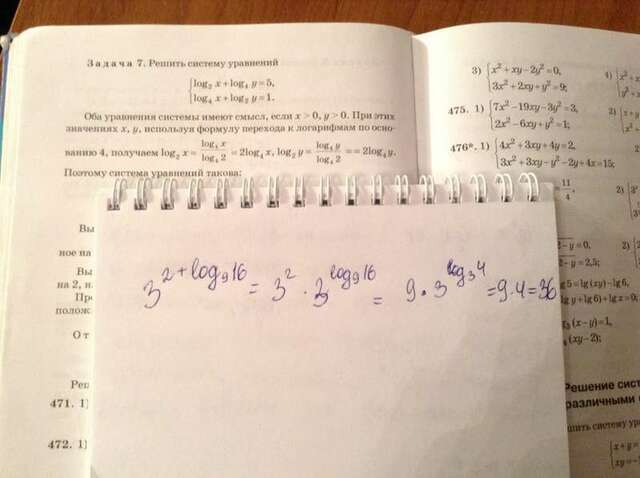 Задача 7. Решить систему уравнений
{log₂ x + log₄ y = 5,
log₄ x + log₂ y = 1.
Оба уравнения системы имеют смысл, если x > 0, y > 0. При этих
значениях x, y, используя формулу перехода к логарифмам по осно-
ванию 4, получаем log₂ x = log₄ x / log₄ 2 = 2log₄ x, log₂ y = log₄ y / log₄ 2 = = 2log₄ y.
Поэтому система уравнений такова:
Вы
ное на
Вы
на 2, и
Пр
полож
От
Реш
471. 1)
472. 1)
3^(2 + log₉16) = 3² · 3^(log₉16) = 9 · 3^(log₃4) = 9 · 4 = 36
3) {x² + xy − 2y² = 0,
3x² + 2xy + y² = 9;
4) {x² +
y² +
475. 1) {7x² − 19xy − 3y² = 3,
2x² − 6xy + y² = 1;
2) {
476*. 1) {4x² + 3xy + 4y = 2,
3x² + 3xy − y² − 2y + 4x = 15;
2)
11/4,
2) {3
− y = 0,
− y = 2,5;
2) {
lg 5 = lg (xy) − lg 6,
lg y + lg 6) + lg x = 0;
(x − y) = 1,
(xy − 2);
Решение сис
различными
шить систему ура
{x + y =
xy = −